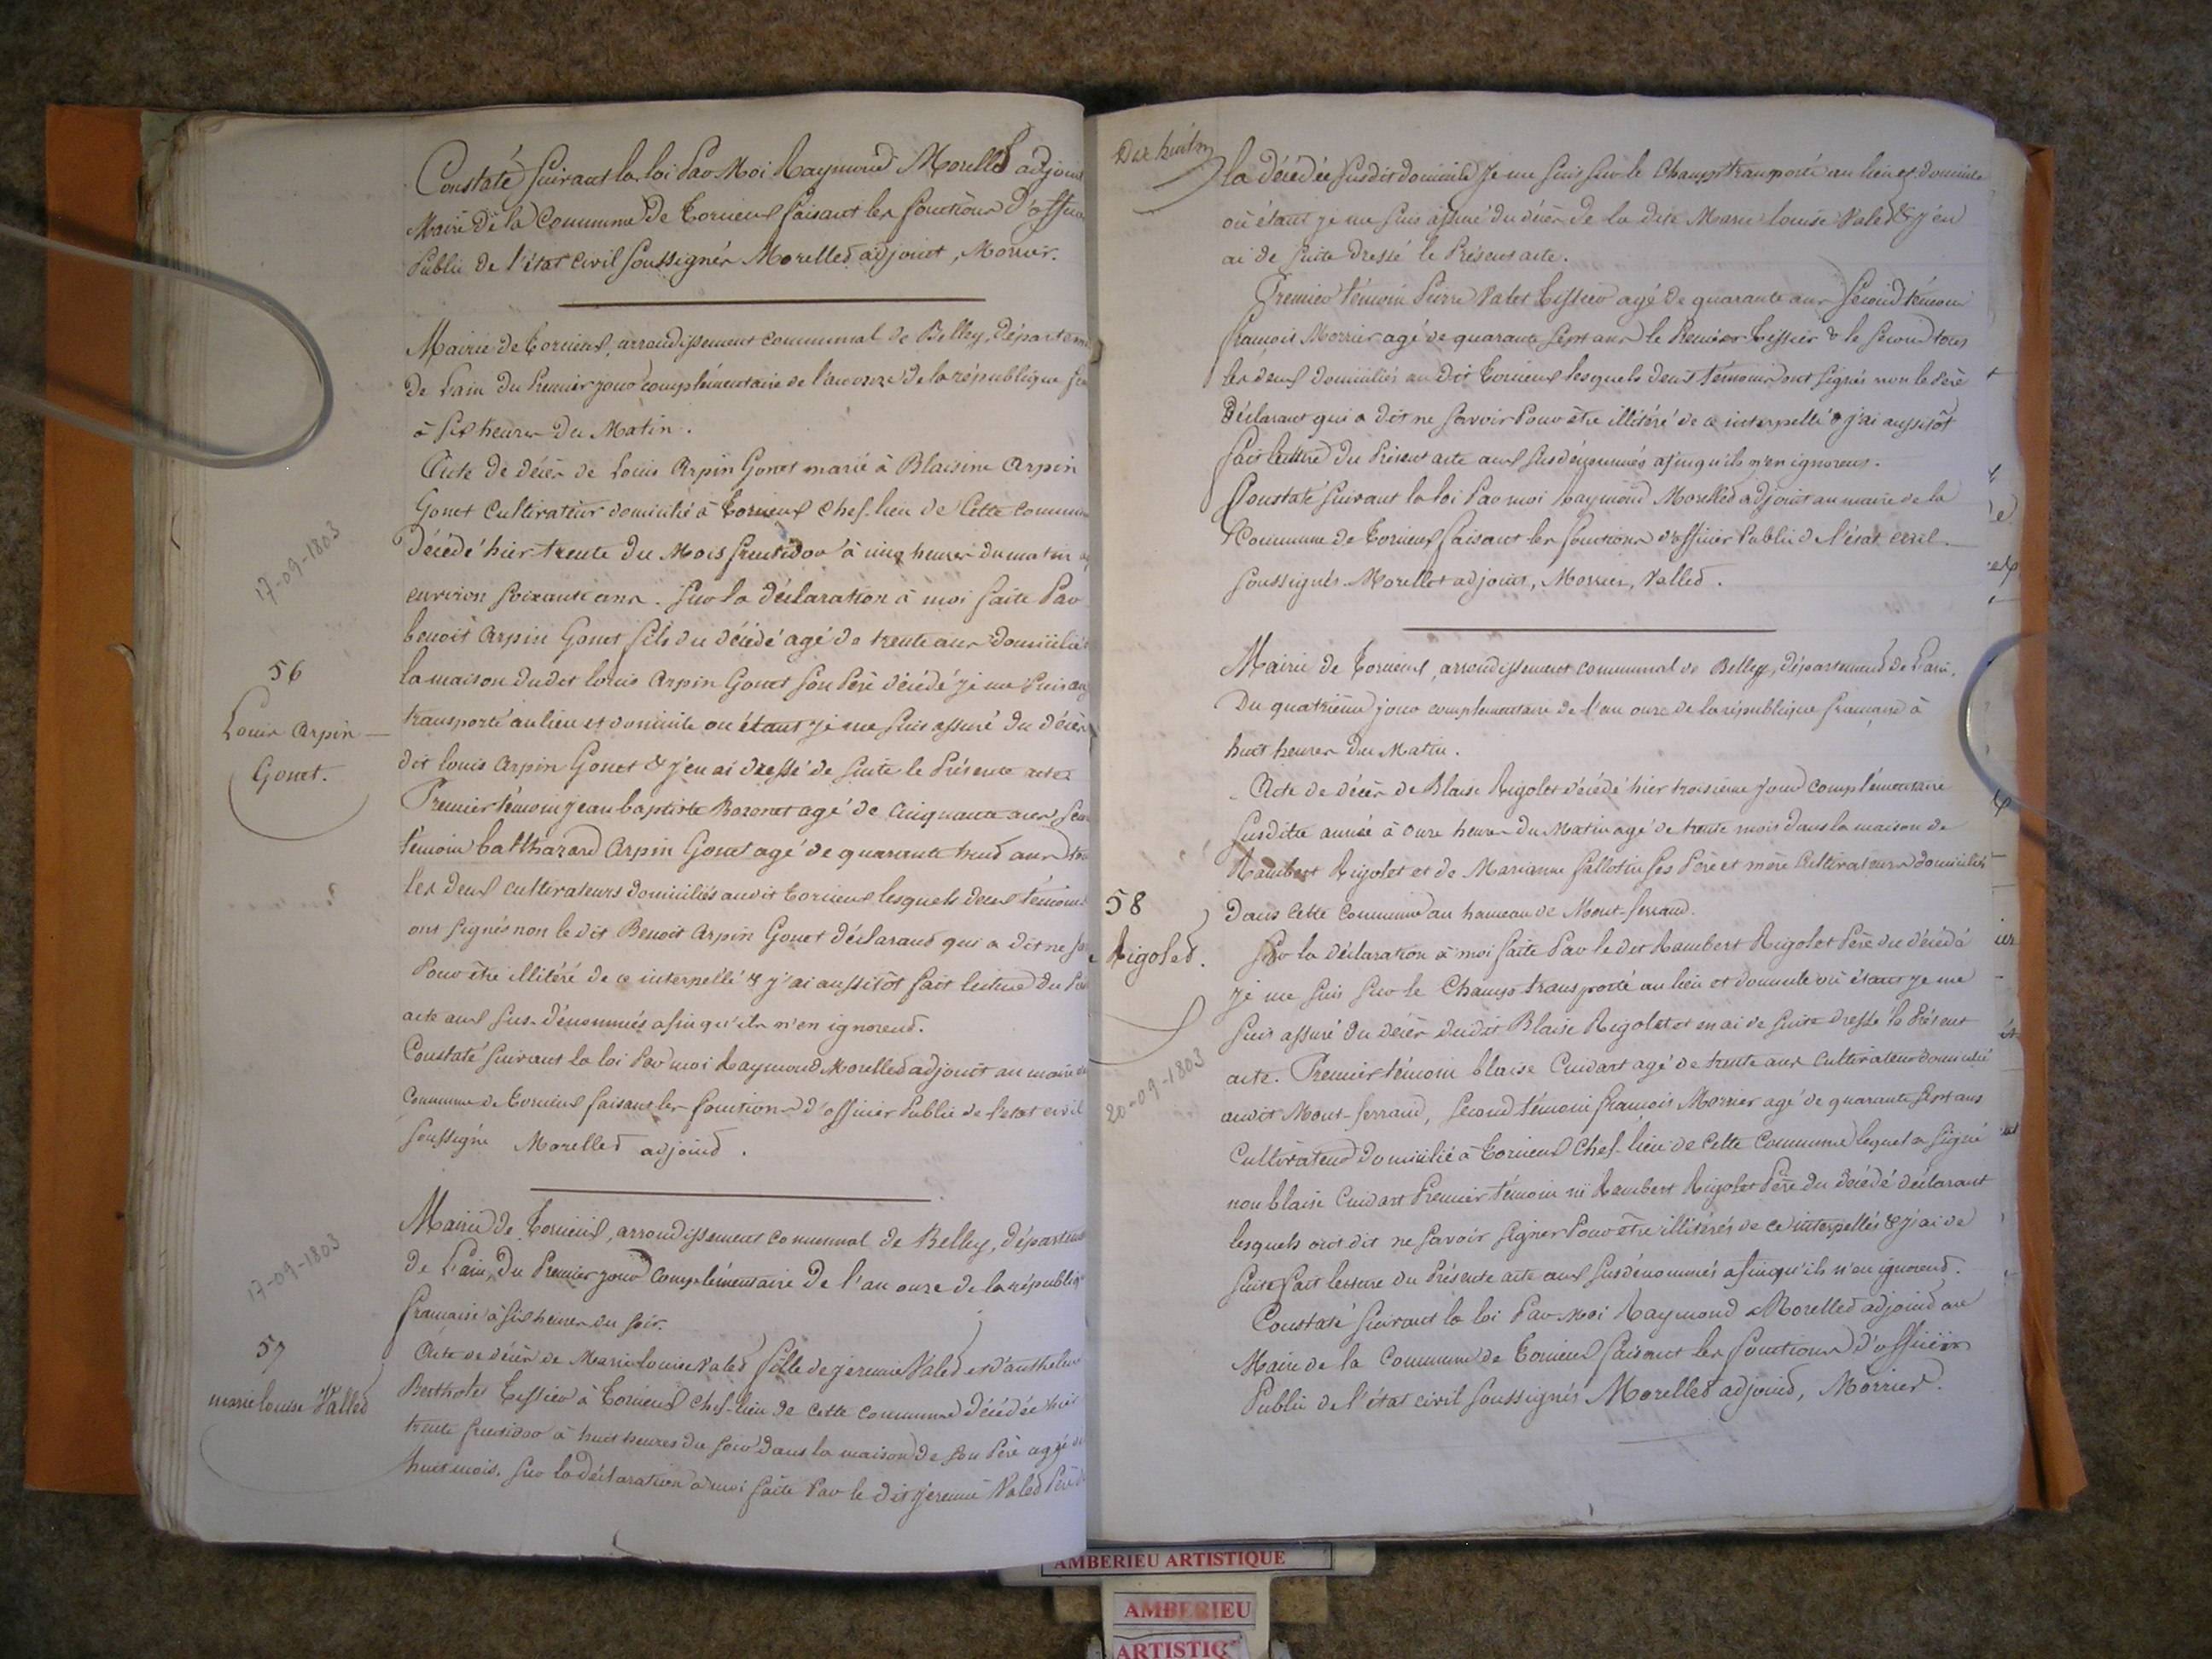 Constaté suivant la loi Par Moi Raymond Morellet adjoint
Maire de la Commune de Torcieux faisant les fonctions d'officier
Public de l'état civil soussignés Morelled adjoint, Morrier.
Mairie de Torcieux, arrondissement communal de Belley, départeme
de l'ain du Premier jour complémentaire de l'an onze de la république
à six heures du Matin.
Acte de décès de Louis Arpin Gonet marié à Blaisine Arpin
Gonet Cultivateur domicilié à Torcieux Chef-lieu de Cette Commune
17-09-1803
Décédé hier trente du Mois fructidor à cinq heures du matin
environ soixante ans. Sur la déclaration à moi faite Par
benoit Arpin Gonet fils du décédé agé de trente ans domicilié
56
la maison dudit louis Arpin Gonet son Père décédé je me suis
Louis Arpin
transporté au lieu et domicile où étant je me suis assuré du décès
Gonet.
dit louis Arpin Gonet & j'en ai dressé de suite le Présente acte
Premier témoin jean baptiste Bozonet agé de Cinquante ans
témoin balthazard Arpin Gonet agé de quarante huit ans
les deux cultivateurs domiciliés audit torcieux lesquels deux témoins
ont signés non le dit Benoit Arpin Gonet déclarant qui a dit ne
Pour être illitéré de ce interpellé & j'ai aussitôt fait lecture du
acte aux sus-dénommés afin qu'ils n'en ignorent.
Constaté suivant la loi Par moi Raymond Morelled adjoint au maire de
Commune de Torcieux faisant les fonctions d'officier Public de l'etat civil
soussigné Morelled adjoint.
17-09-1803
Mairie de Torcieux, arrondissement communal de Belley, départem
de l'ain, du Premier jour complémentaire de l'an onze de la républiq
francaise à six heures du soir.
57
marie louise Valled
Acte de décès de Marie louise Valed fille de jeremie Valed et d'anthel
Bertholet Tessier à Torcieux Chef-lieu de cette commune décédée hier
trente fructidor à huit heures du soir dans la maison de son Père agée de
huit mois. Sur la déclaration à moi faite Par le dit jéremie Valed Père
Dix huit
la décédée susdit domicile je me suis sur le Champ transporté au lieu et domicile
où étant je me suis assuré du décès de la dite Marie louise Valed & j'en
ai de suite dressé le Présent acte.
Premier témoin Pierre Valet Tissier agé de quarante ans second témoin
francois Morrier agé de quarante sept ans le Premier Tissier & le second tous
les deux domiciliés au dit Torcieux lesquels deux témoins ont signés non le Père
Déclarant qui a dit ne savoir Pour être illitéré de ce interpellé & j'ai aussitôt
fait lecture du Présent acte aux susdénommés afin qu'ils n'en ignorent.
Constaté suivant la loi Par moi Raymond Morelled adjoint au maire de la
Commune de Torcieux faisant les fonctions d'officier Public de l'état civil
soussignés Morellet adjoint, Morrier, Valled.
Mairie de Torcieux, arrondissement communal de Belley, département de l'ain.
Du quatrième jour complementaire de l'an onze de la république francaise à
huit heures du Matin.
Acte de décès de Blaise Rigolet décédé hier troisième jour complémentaire
susdite année à onze heures du Matin agé de trente mois dans la maison de
Rambert Rigolet et de Marianne Sallotin ses Père et mère Cultivateurs domiciliés
58
dans cette commune au hameau de Mont-ferrand.
Rigoled.
Sur la déclaration à moi faite Par le dit Rambert Rigolet Père du décédé
je me suis sur le Champ transporté au lieu et domicile où étant je me
suis assuré du décès dudit Blaise Rigolet et en ai de suite dressé le Présent
20-09-1803
acte. Premier témoin blaise Cuidart agé de trente ans Cultivateur domicilié
audit Mont-ferrand, second témoin francois Morrier agé de quarante sept ans
Cultivateur domicilié à Torcieux Chef-lieu de Cette Commune lequel a signé
non blaise Cuidart Premier témoin ni Rambert Rigolet Père du décédé déclarant
lesquels ont dit ne savoir signer Pour être illitérés de ce interpellés & j'ai de
suite fait lecture du Présente acte aux susdénommés afin qu'ils n'en ignorent.
Constaté suivant la loi Par Moi Raymond Morelled adjoint au
Maire de la Commune de Torcieux faisant les fonctions d'officier
Public de l'état civil soussignés Morelled adjoint, Morrier.
AMBERIEU ARTISTIQUE
AMBERIEU
ARTISTIQ